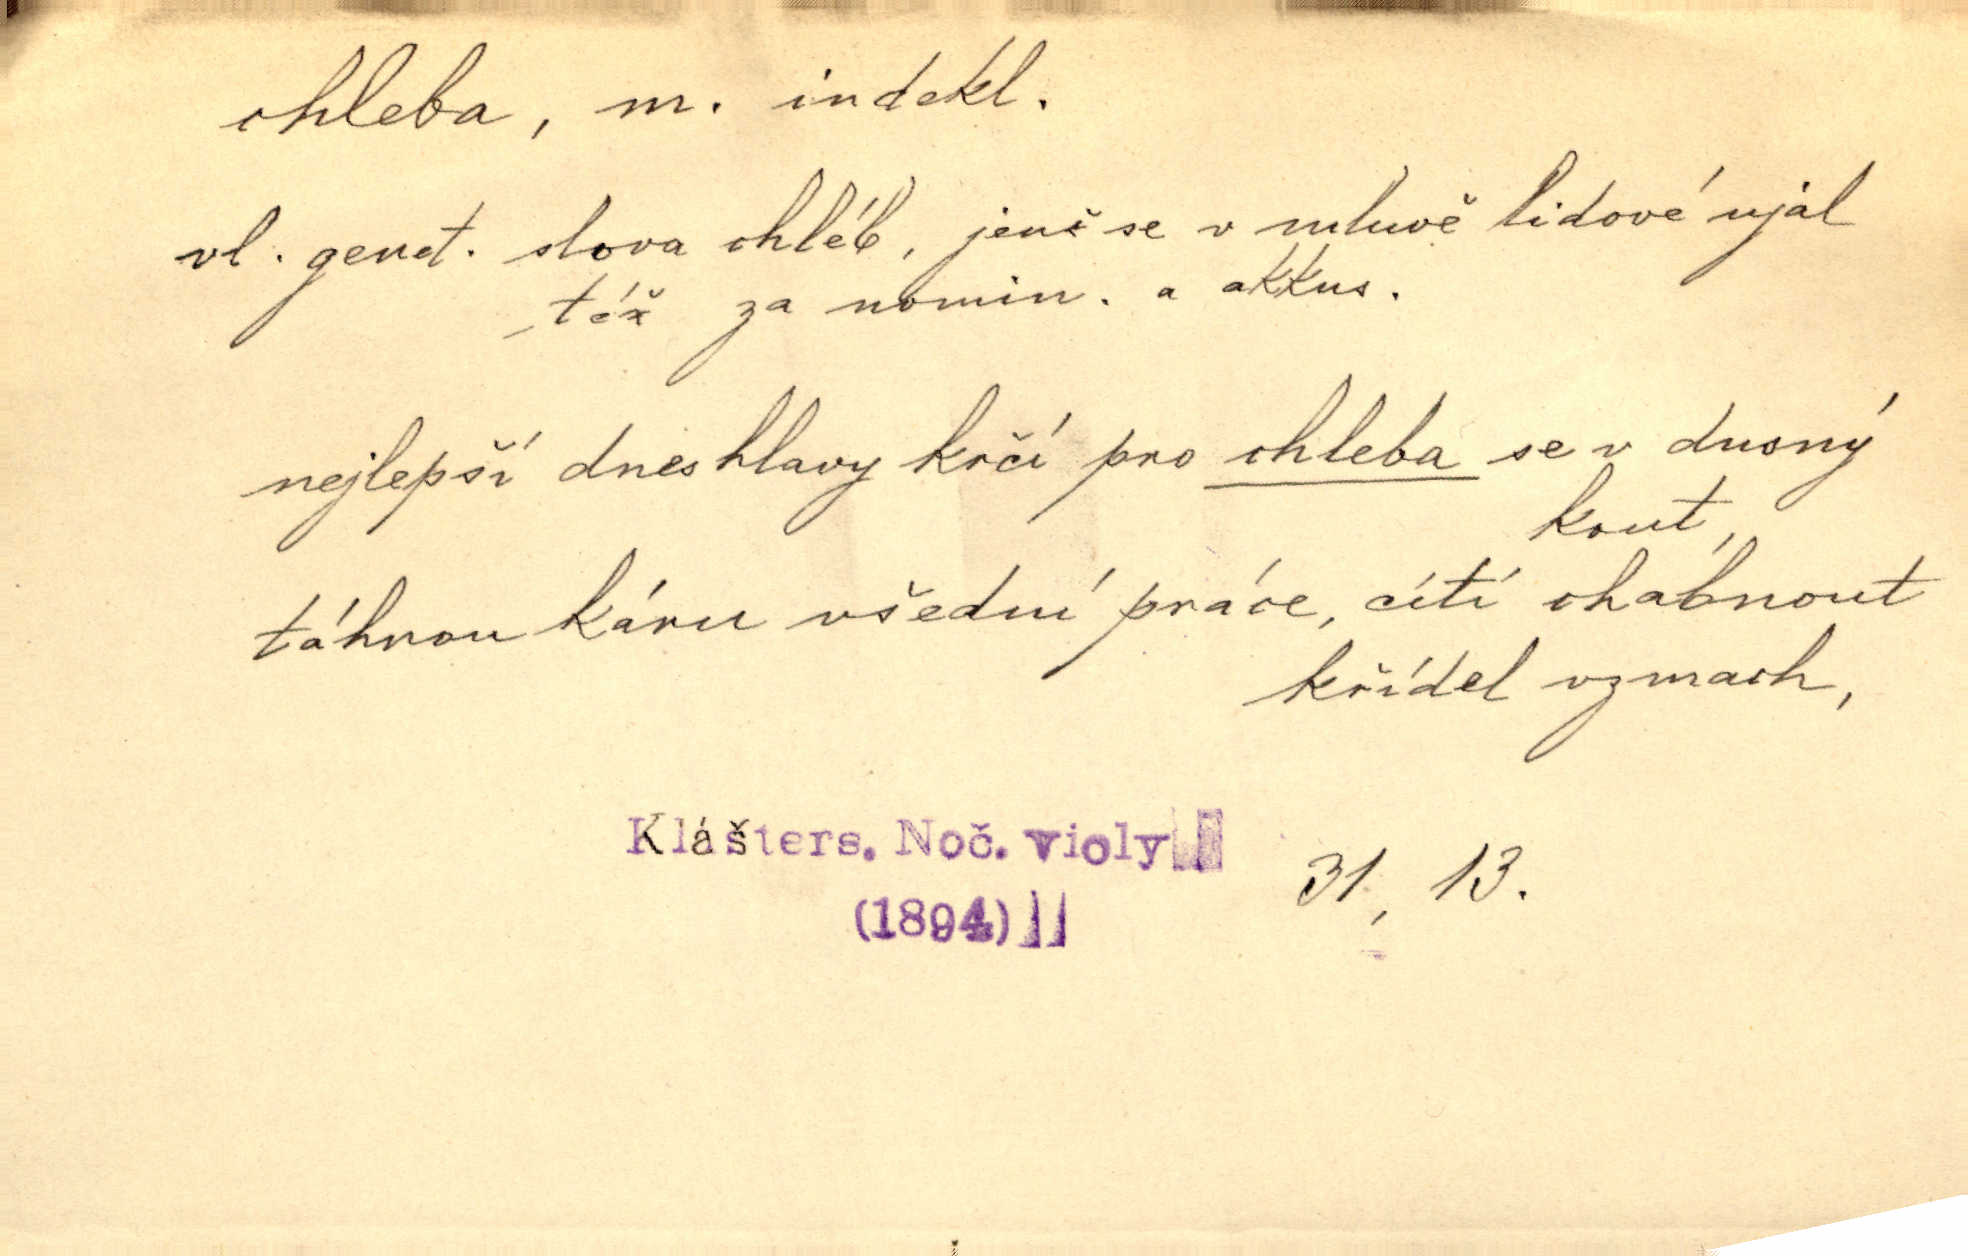 chleba, m. indekl.
vl. genet. slova chléb, jenž se v mluvě lidové ujal
též za nomin. a akkus.
nejlepší dnes hlavy krčí pro chleba se v dusný
kout,
táhnou káru všední práce, cítí chabnout
křídel vzmach,
Klášters. Noč. violy
31, 13.
(1894)